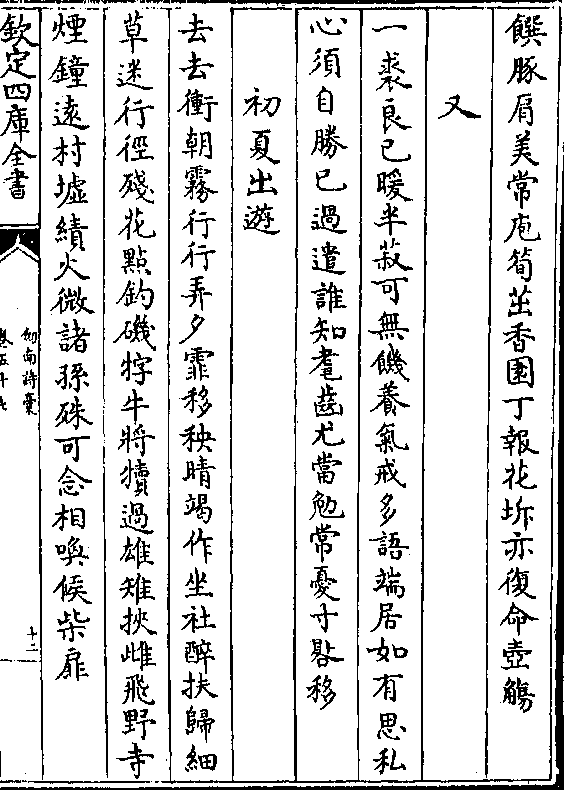 饌豚肩美常庖筍茁香園丁報花坼亦復命壺觴
又
一裘良已暖半菽可無饑養氣戒多語端居如有思私
心須自勝已過遣誰知耄齒尤當勉常憂寸晷移
初夏出遊
去去衝朝霧行行弄夕霏移秧晴竭作坐社醉扶歸細
草迷行徑殘花點釣磯牸牛將犢過雄雉挾雌飛野寺
煙鐘遠村墟績火微諸孫殊可念相喚候柴扉
欽定四庫全書
劍南詩稾
十二